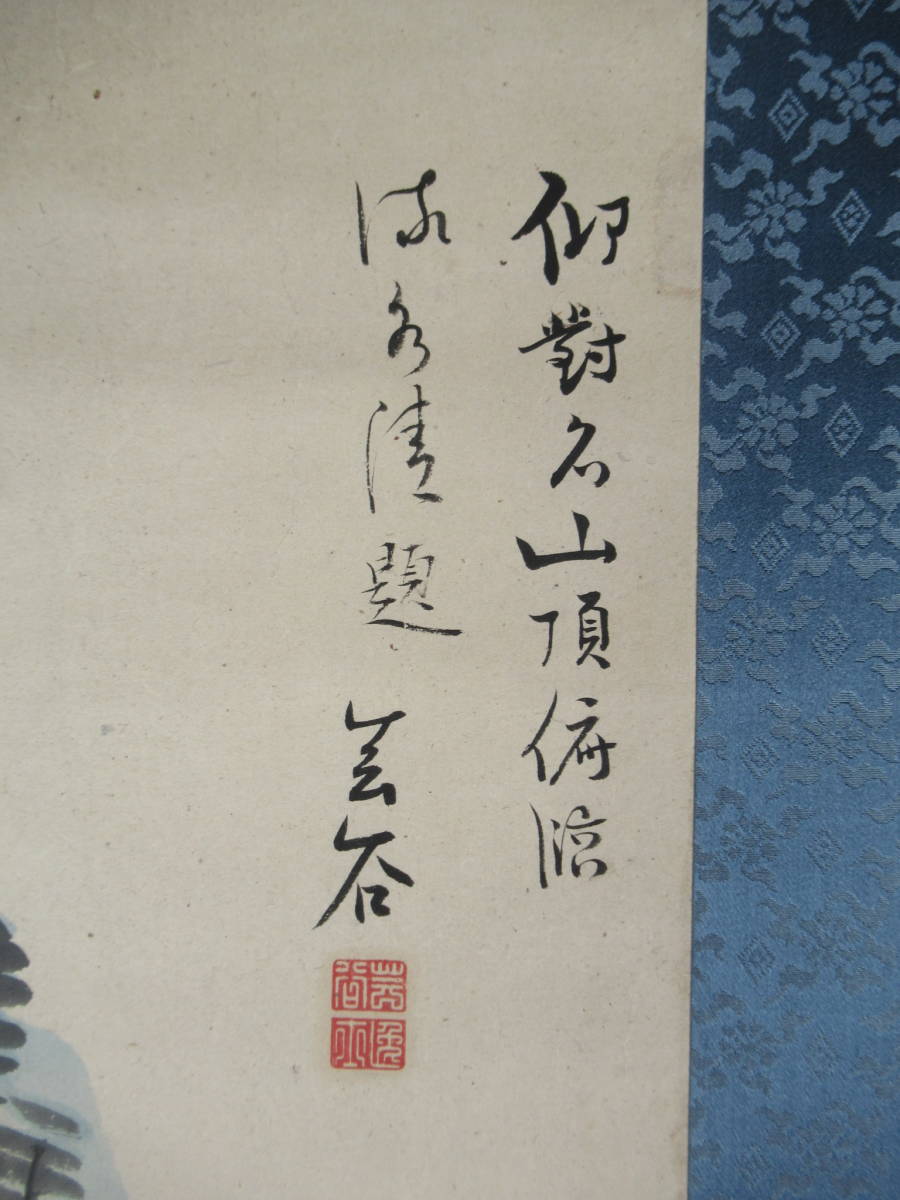 仰對名山頂俯臨
流水清題 芸谷